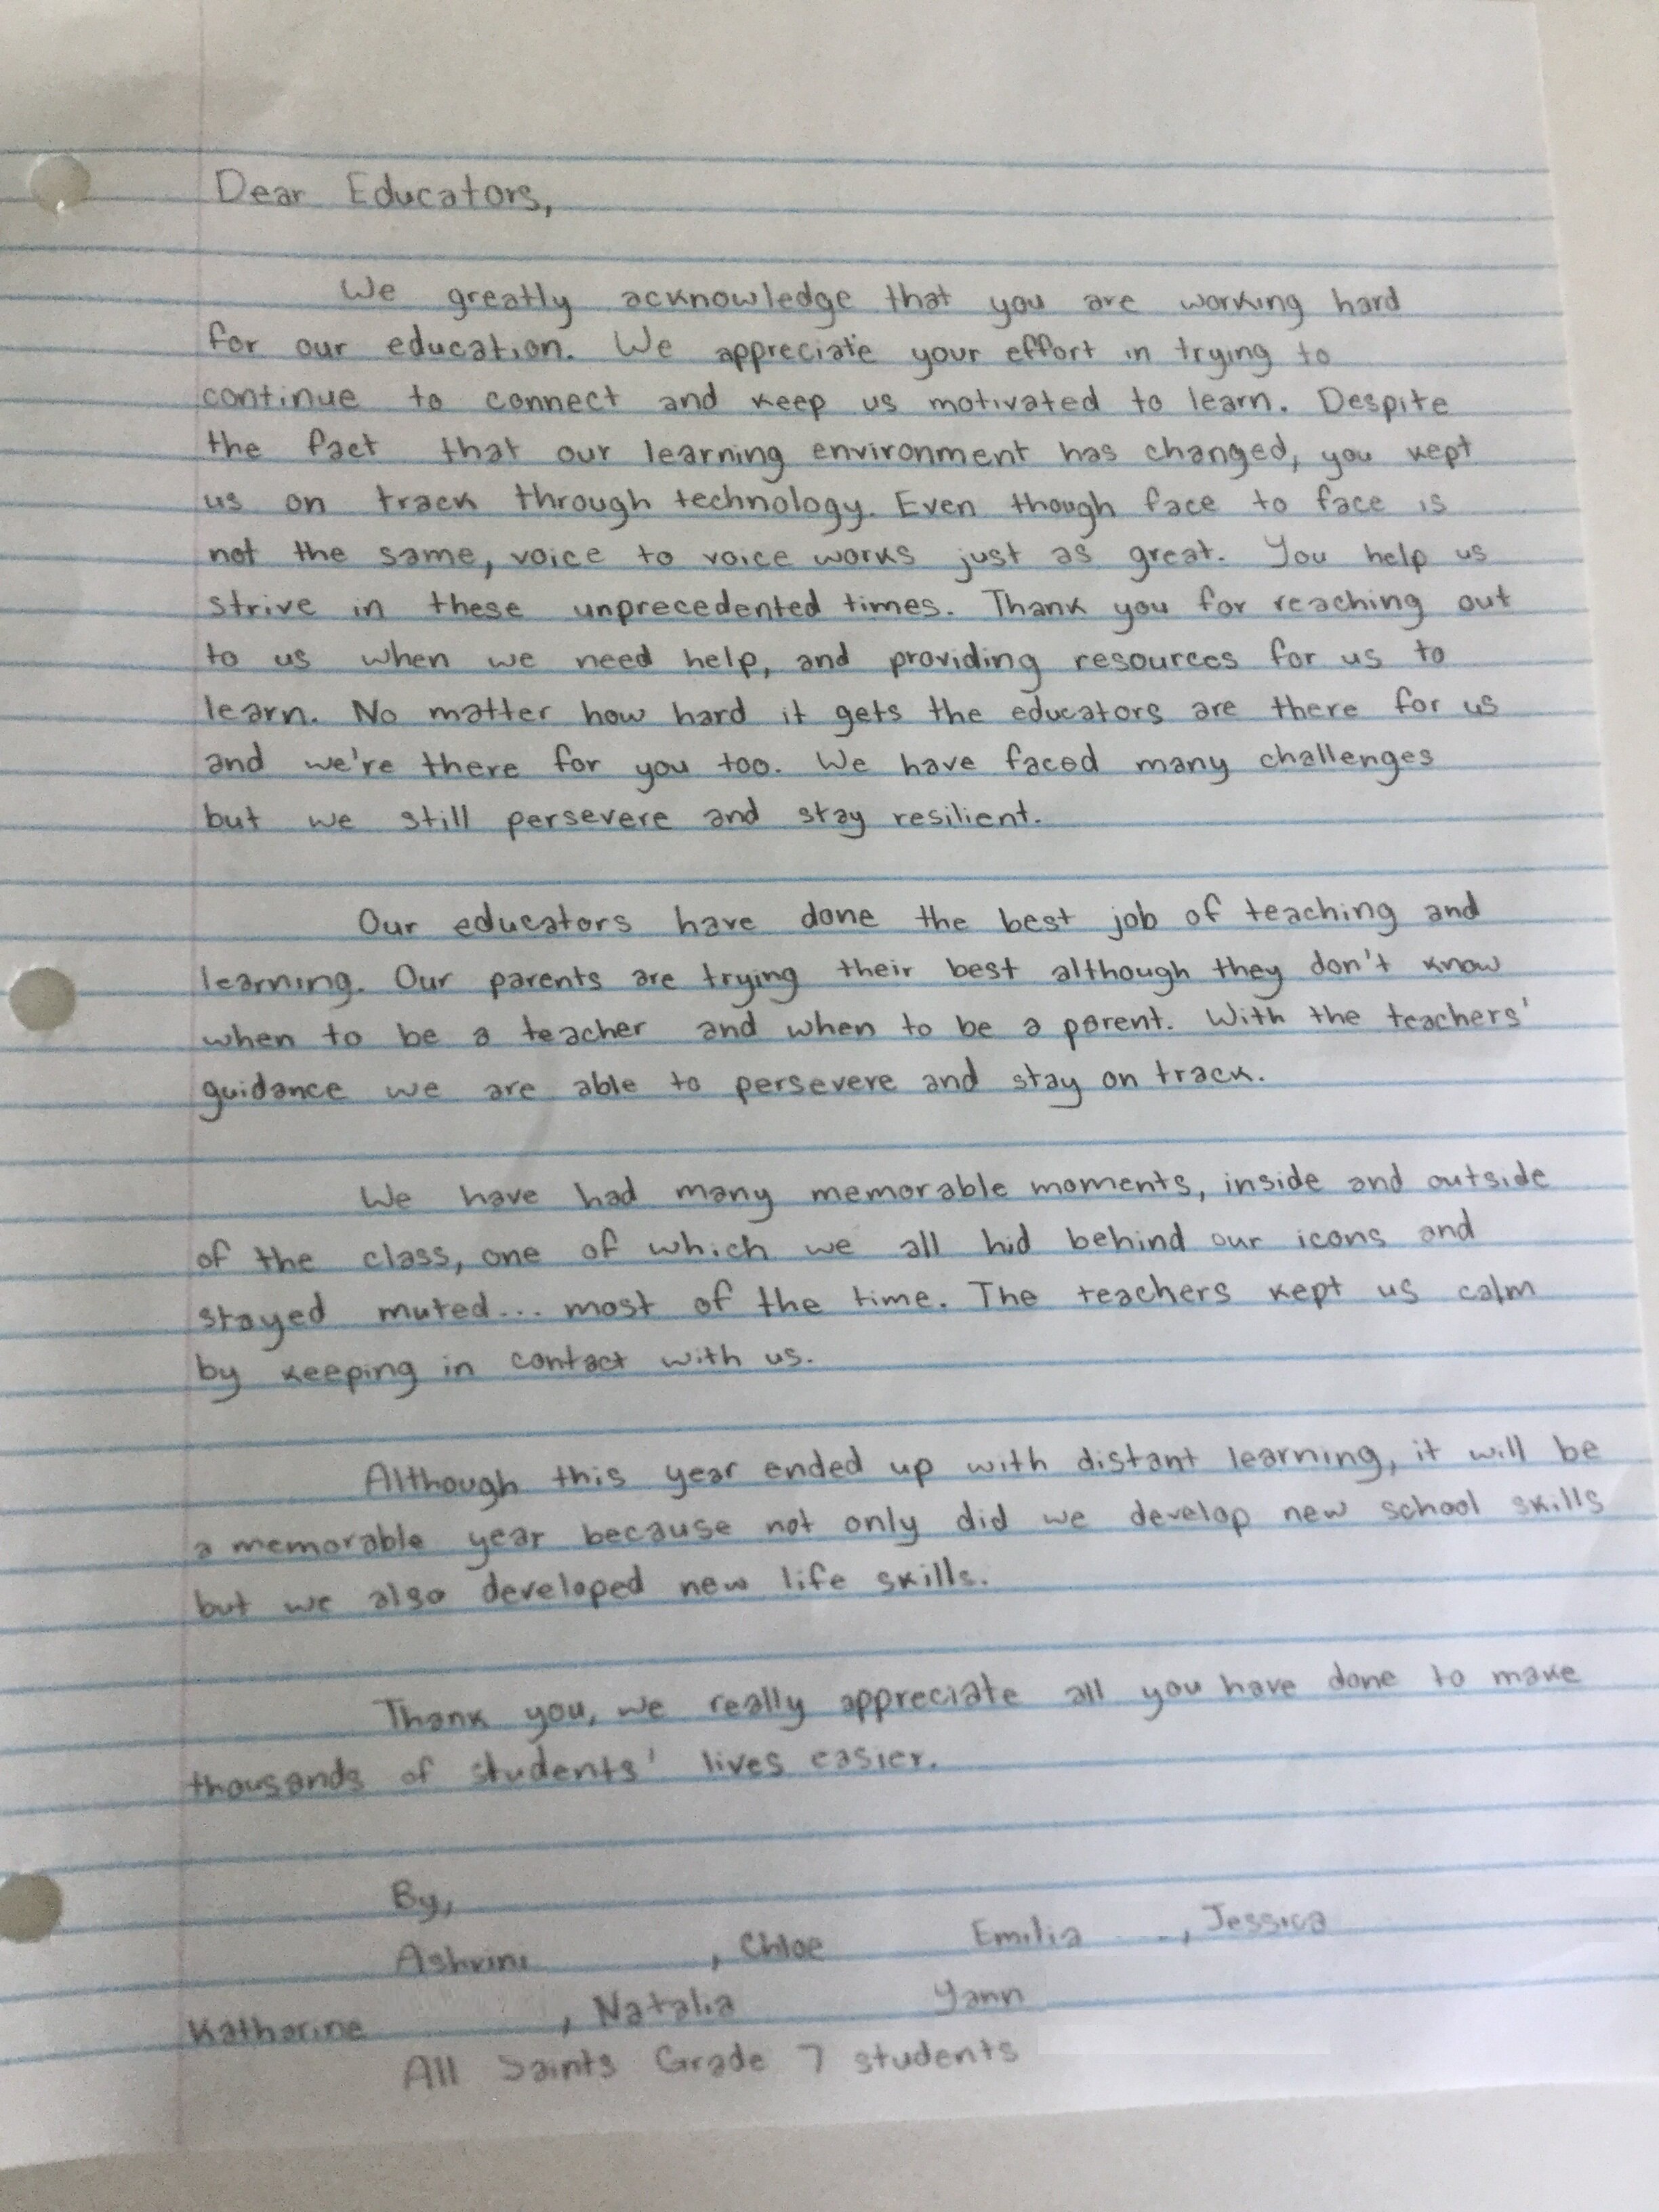 Dear Educators,
We greatly acknowledge that you are working hard
for our education. We appreciate your effort in trying to
continue to connect and keep us motivated to learn. Despite
the fact that our learning environment has changed, you kept
us on track through technology. Even though face to face is
not the same, voice to voice works just as great. You help us
strive in these unprecedented times. Thank you for reaching out
to us when we need help, and providing resources for us to
learn. No matter how hard it gets the educators are there for us
and we're there for you too. We have faced many challenges
but we still persevere and stay resilient.
Our educators have done the best job of teaching and
learning. Our parents are trying their best although they don't know
when to be a teacher and when to be a parent. With the teachers'
guidance we are able to persevere and stay on track.
We have had many memorable moments, inside and outside
of the class, one of which we all hid behind our icons and
stayed muted... most of the time. The teachers kept us calm
by keeping in contact with us.
Although this year ended up with distant learning, it will be
a memorable year because not only did we develop new school skills
but we also developed new life skills.
Thank you, we really appreciate all you have done to make
thousands of students' lives easier.
By,
, Chloe Emilia , Jessica
Katharine , Natalia Yann
All Saints Grade 7 students